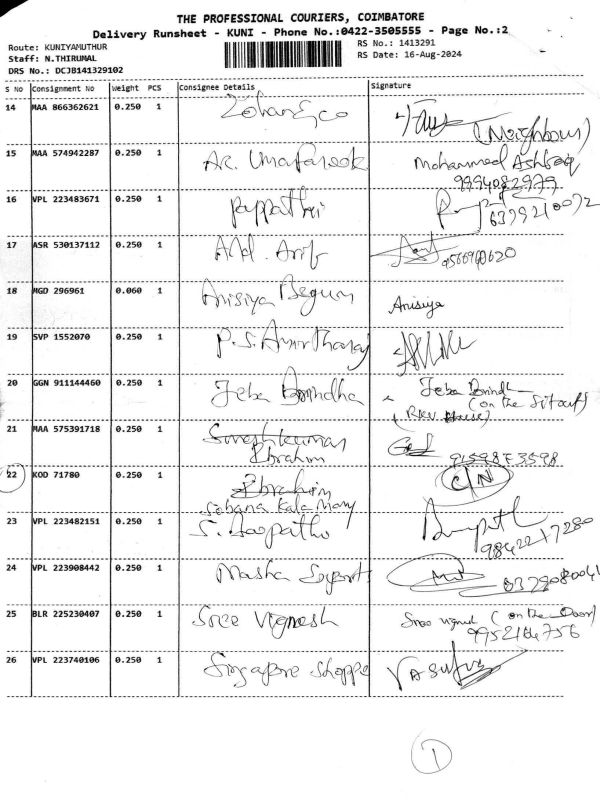 THE PROFESSIONAL COURIERS, COIMBATORE
Delivery Runsheet - KUNI - Phone No.:0422-3505555 - Page No.:2
Route: KUNIYAMUTHUR
RS No.: 1413291
Staff: N.THIRUMAL
RS Date: 16-Aug-2024
DRS No.: DCJB141329102
S No Consignment No Weight PCS Consignee Details Signature
14 MAA 866362621 0.250 1 Zohar & co
(Neighbour)
15 MAA 574942287 0.250 1 AR. Umafarook Mohammed Ashfaq
9994082979
16 VPL 223483671 0.250 1 pappathi
6379210072
17 ASR 530137112 0.250 1 Arif
18 MGD 296961 0.060 1 Anisiya Begum Anisiya
19 SVP 1552070 0.250 1 P.S. Amirtharaj
20 GGN 911144460 0.250 1 Jeba
Jeba
(on the Sitout)
(RKV House)
21 MAA 575391718 0.250 1 Sureshkumar
Ebrahim 9159873598
22 KOD 71780 0.250 1 Ebrahim C/N
Sobana Kala Mary
23 VPL 223482151 0.250 1 S.
9842217280
24 VPL 223908442 0.250 1 Masha
25 BLR 225230407 0.250 1 Sree Vignesh Sree (on the Door)
26 VPL 223740106 0.250 1 Singapore Shoppe
1